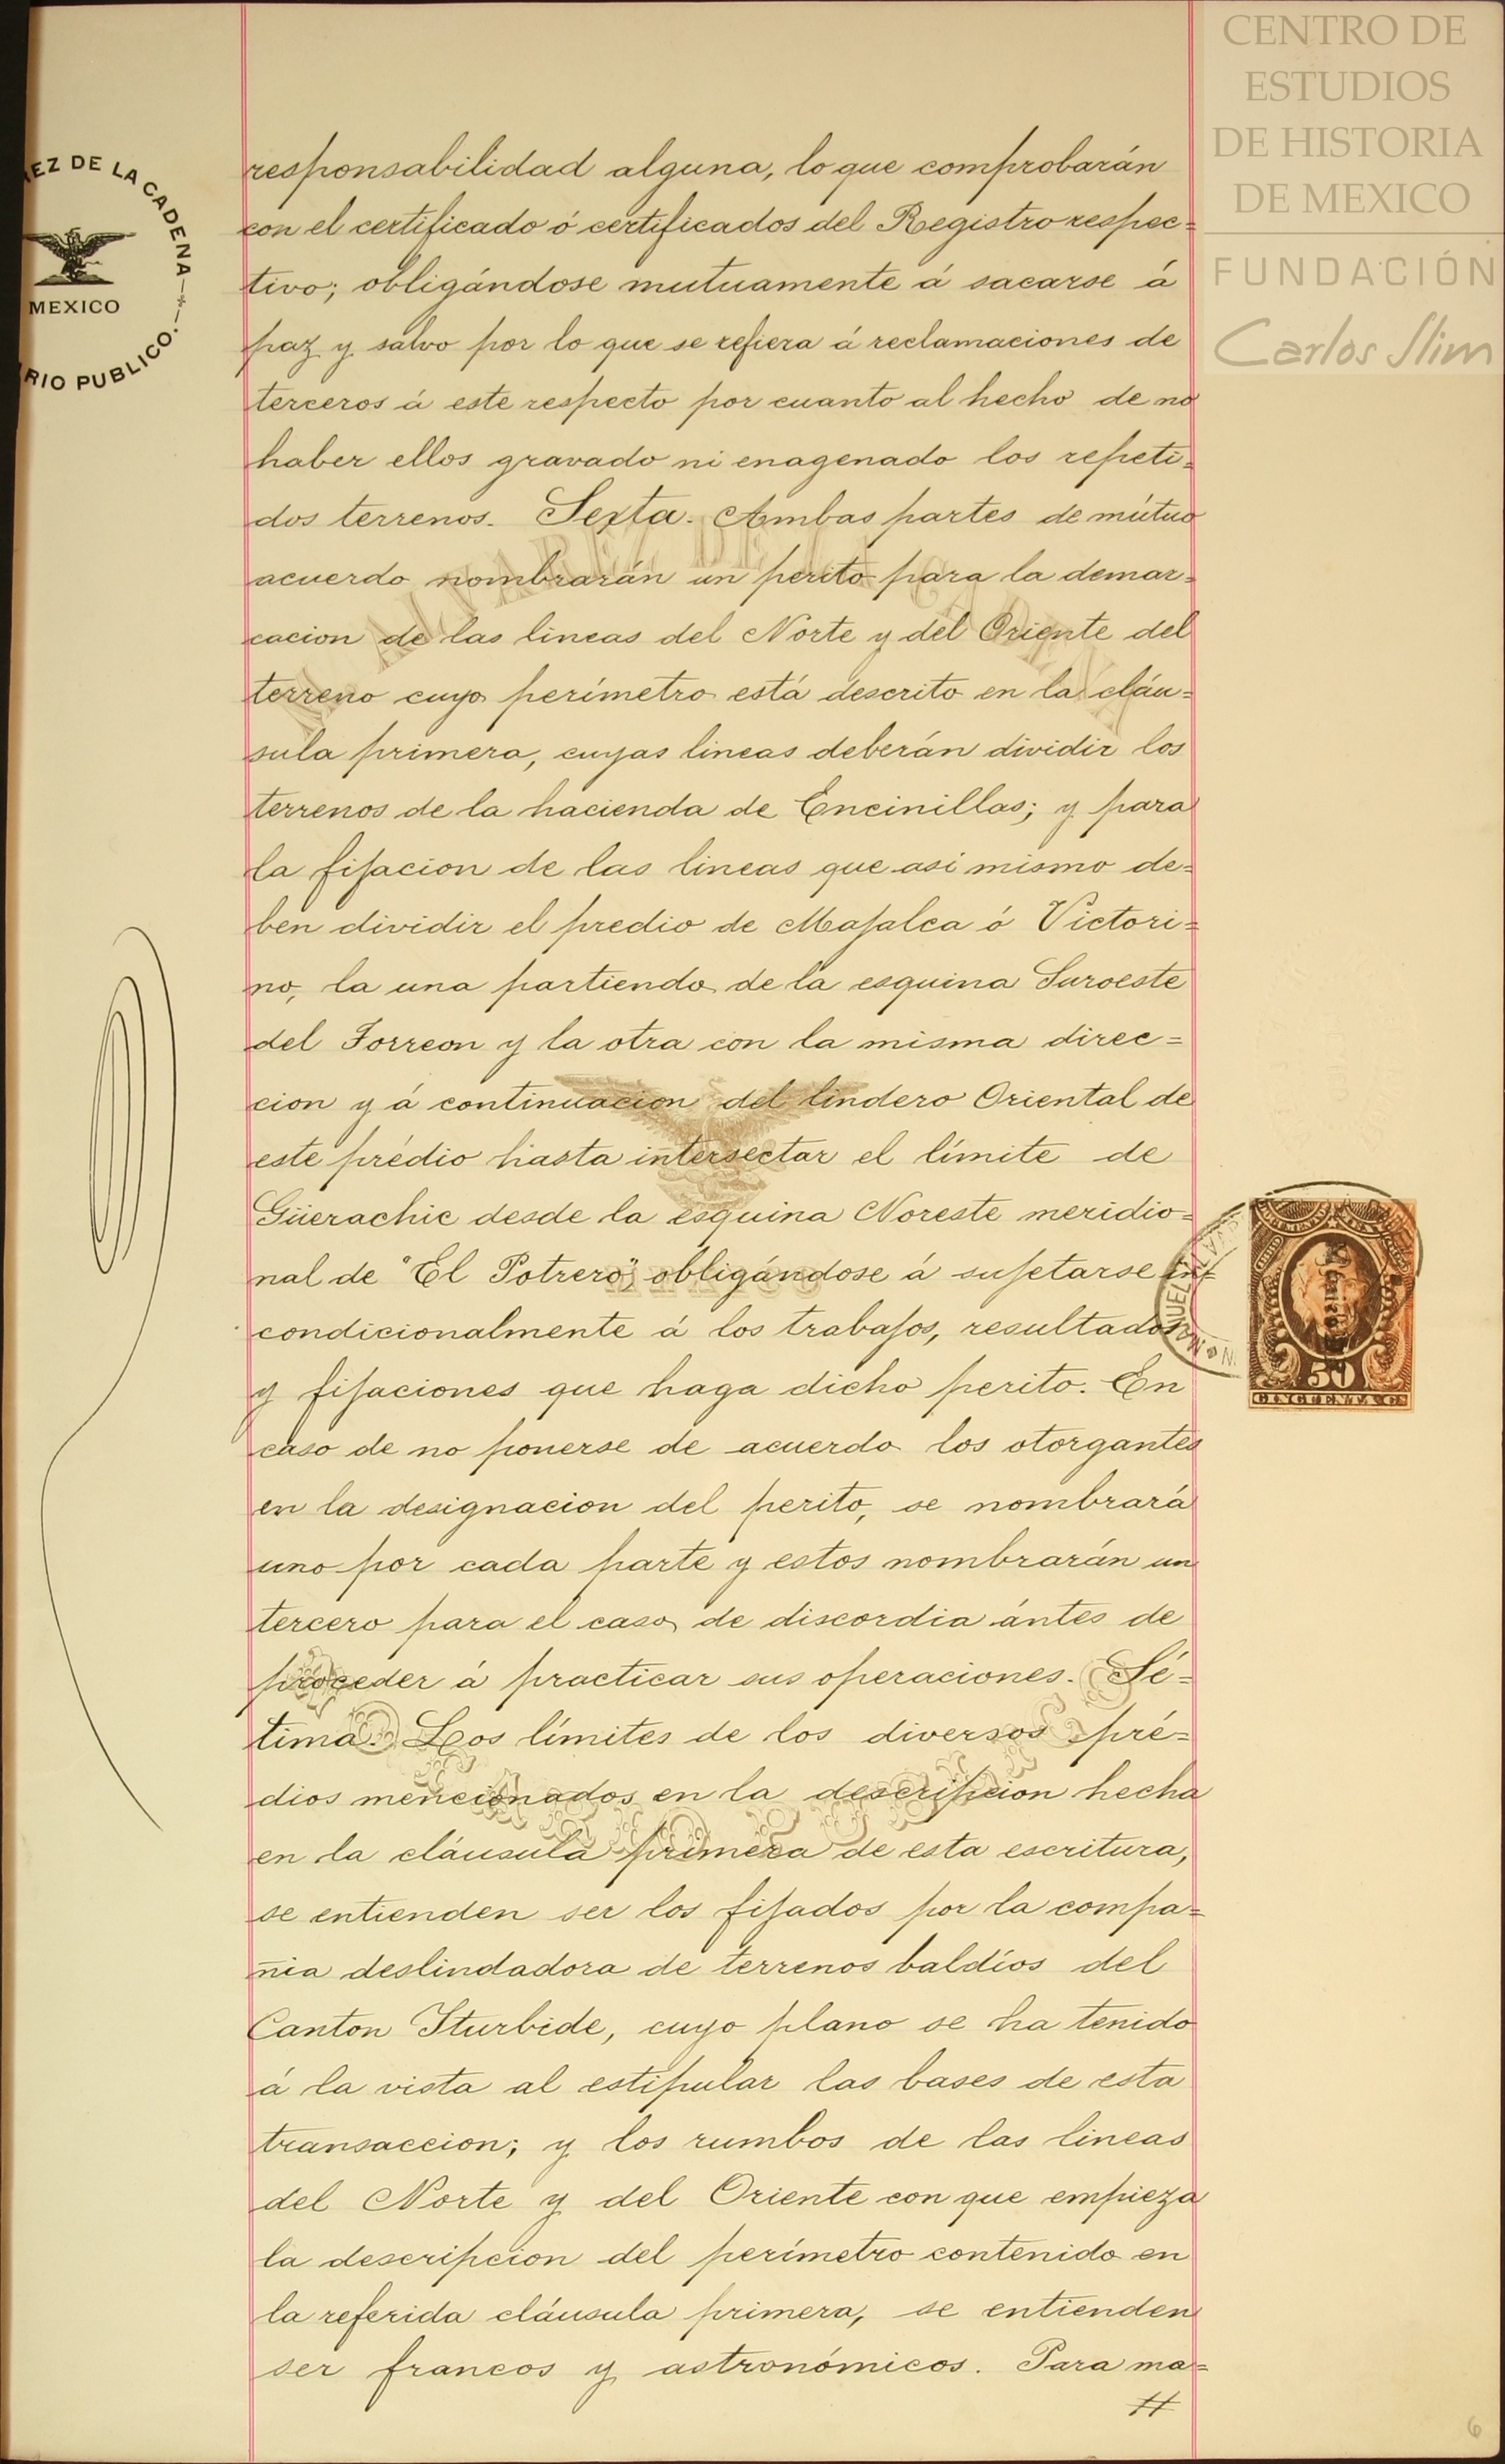 CENTRO DE
ESTUDIOS
DE HISTORIA
DE MEXICO
FUNDACIÓN
Carlos Slim
EZ DE LA CADENA
MEXICO
RIO PUBLICO.
responsabilidad alguna, lo que comprobarán
con el certificado ó certificados del Registro respec=
tivo; obligándose mutuamente á sacarse á
paz y salvo por lo que se refiera á reclamaciones de
terceros á este respecto por cuanto al hecho de no
haber ellos gravado ni enagenado los repeti=
dos terrenos. Sexta. Ambas partes de mútuo
acuerdo nombrarán un perito para la demar=
cacion de las lineas del Norte y del Oriente del
terreno cuyo perímetro está descrito en la cláu=
sula primera, cuyas lineas deberán dividir los
terrenos de la hacienda de Encinillas; y para
la fijacion de las lineas que asi mismo de=
ben dividir el predio de Majalca ó Victori=
no, la una partiendo de la esquina Suroeste
del Torreon y la otra con la misma direc=
cion y á continuacion del lindero Oriental de
este prédio hasta intersectar el límite de
Güerachic desde la esquina Noreste meridio=
nal de "El Potrero", obligándose á sujetarse in=
condicionalmente á los trabajos, resultados
y fijaciones que haga dicho perito. En
caso de no ponerse de acuerdo los otorgantes
en la designacion del perito, se nombrará
uno por cada parte y estos nombrarán un
tercero para el caso de discordia ántes de
proceder á practicar sus operaciones. Sé=
tima. Los límites de los diversos pré=
dios mencionados en la descripcion hecha
en la cláusula primera de esta escritura,
se entienden ser los fijados por la compa=
ñia deslindadora de terrenos baldíos del
Canton Iturbide, cuyo plano se ha tenido
á la vista al estipular las bases de esta
transaccion; y los rumbos de las lineas
del Norte y del Oriente con que empieza
la descripcion del perímetro contenido en
la referida cláusula primera, se entienden
ser francos y astronómicos. Para ma=
50
CINCUENTA CS.
6